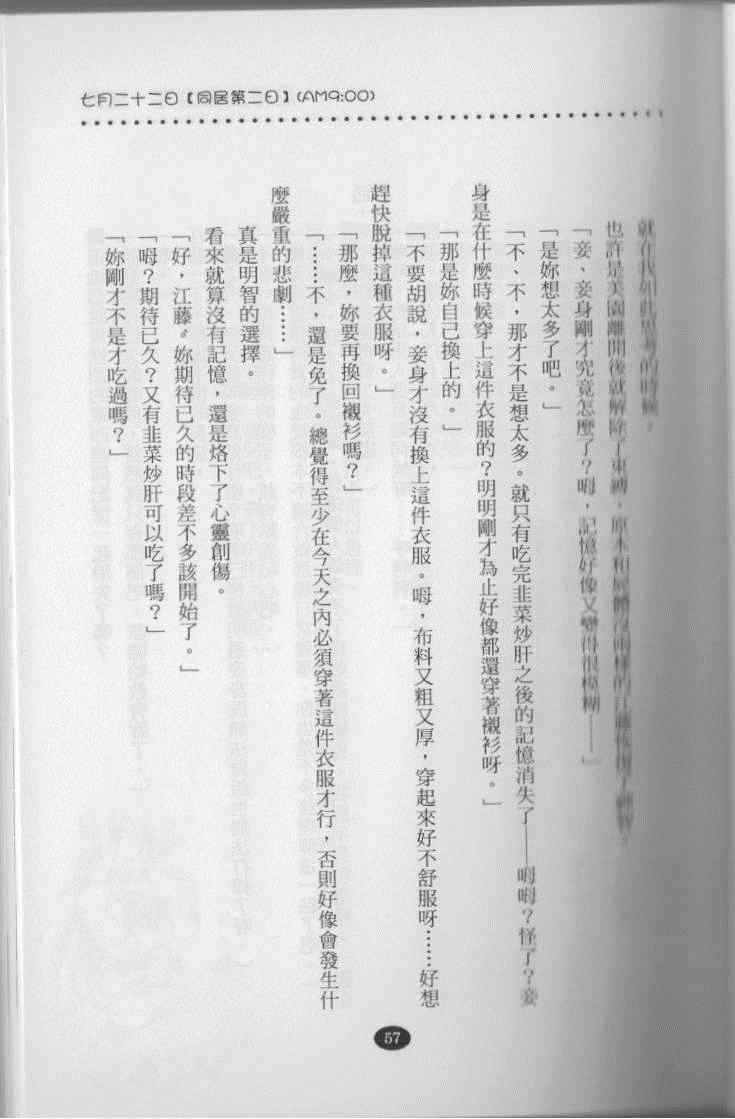 七月二十二日【同居第二日】(AM9:00)
就在我如此思考的時候。
也許是美園離開後就解除了束縛，原本和屍體沒兩樣的江藤恢復了
「妾、妾身剛才究竟怎麼了？呣，記憶好像又變得很模糊——」
「是妳想太多了吧。」
「不、不，那才不是想太多。就只有吃完韭菜炒肝之後的記憶消失了——呣呣？怪了？妾
身是在什麼時候穿上這件衣服的？明明剛才為止好像都還穿著襯衫呀。」
「那是妳自己換上的。」
「不要胡說，妾身才沒有換上這件衣服。呣，布料又粗又厚，穿起來好不舒服呀……好想
趕快脫掉這種衣服呀。」
「那麼，妳要再換回襯衫嗎？」
「……不，還是免了。總覺得至少在今天之內必須穿著這件衣服才行，否則好像會發生什
麼嚴重的悲劇……」
真是明智的選擇。
看來就算沒有記憶，還是烙下了心靈創傷。
「好，江藤。妳期待已久的時段差不多該開始了。」
「呣？期待已久？又有韭菜炒肝可以吃了嗎？」
「妳剛才不是才吃過嗎？」
57